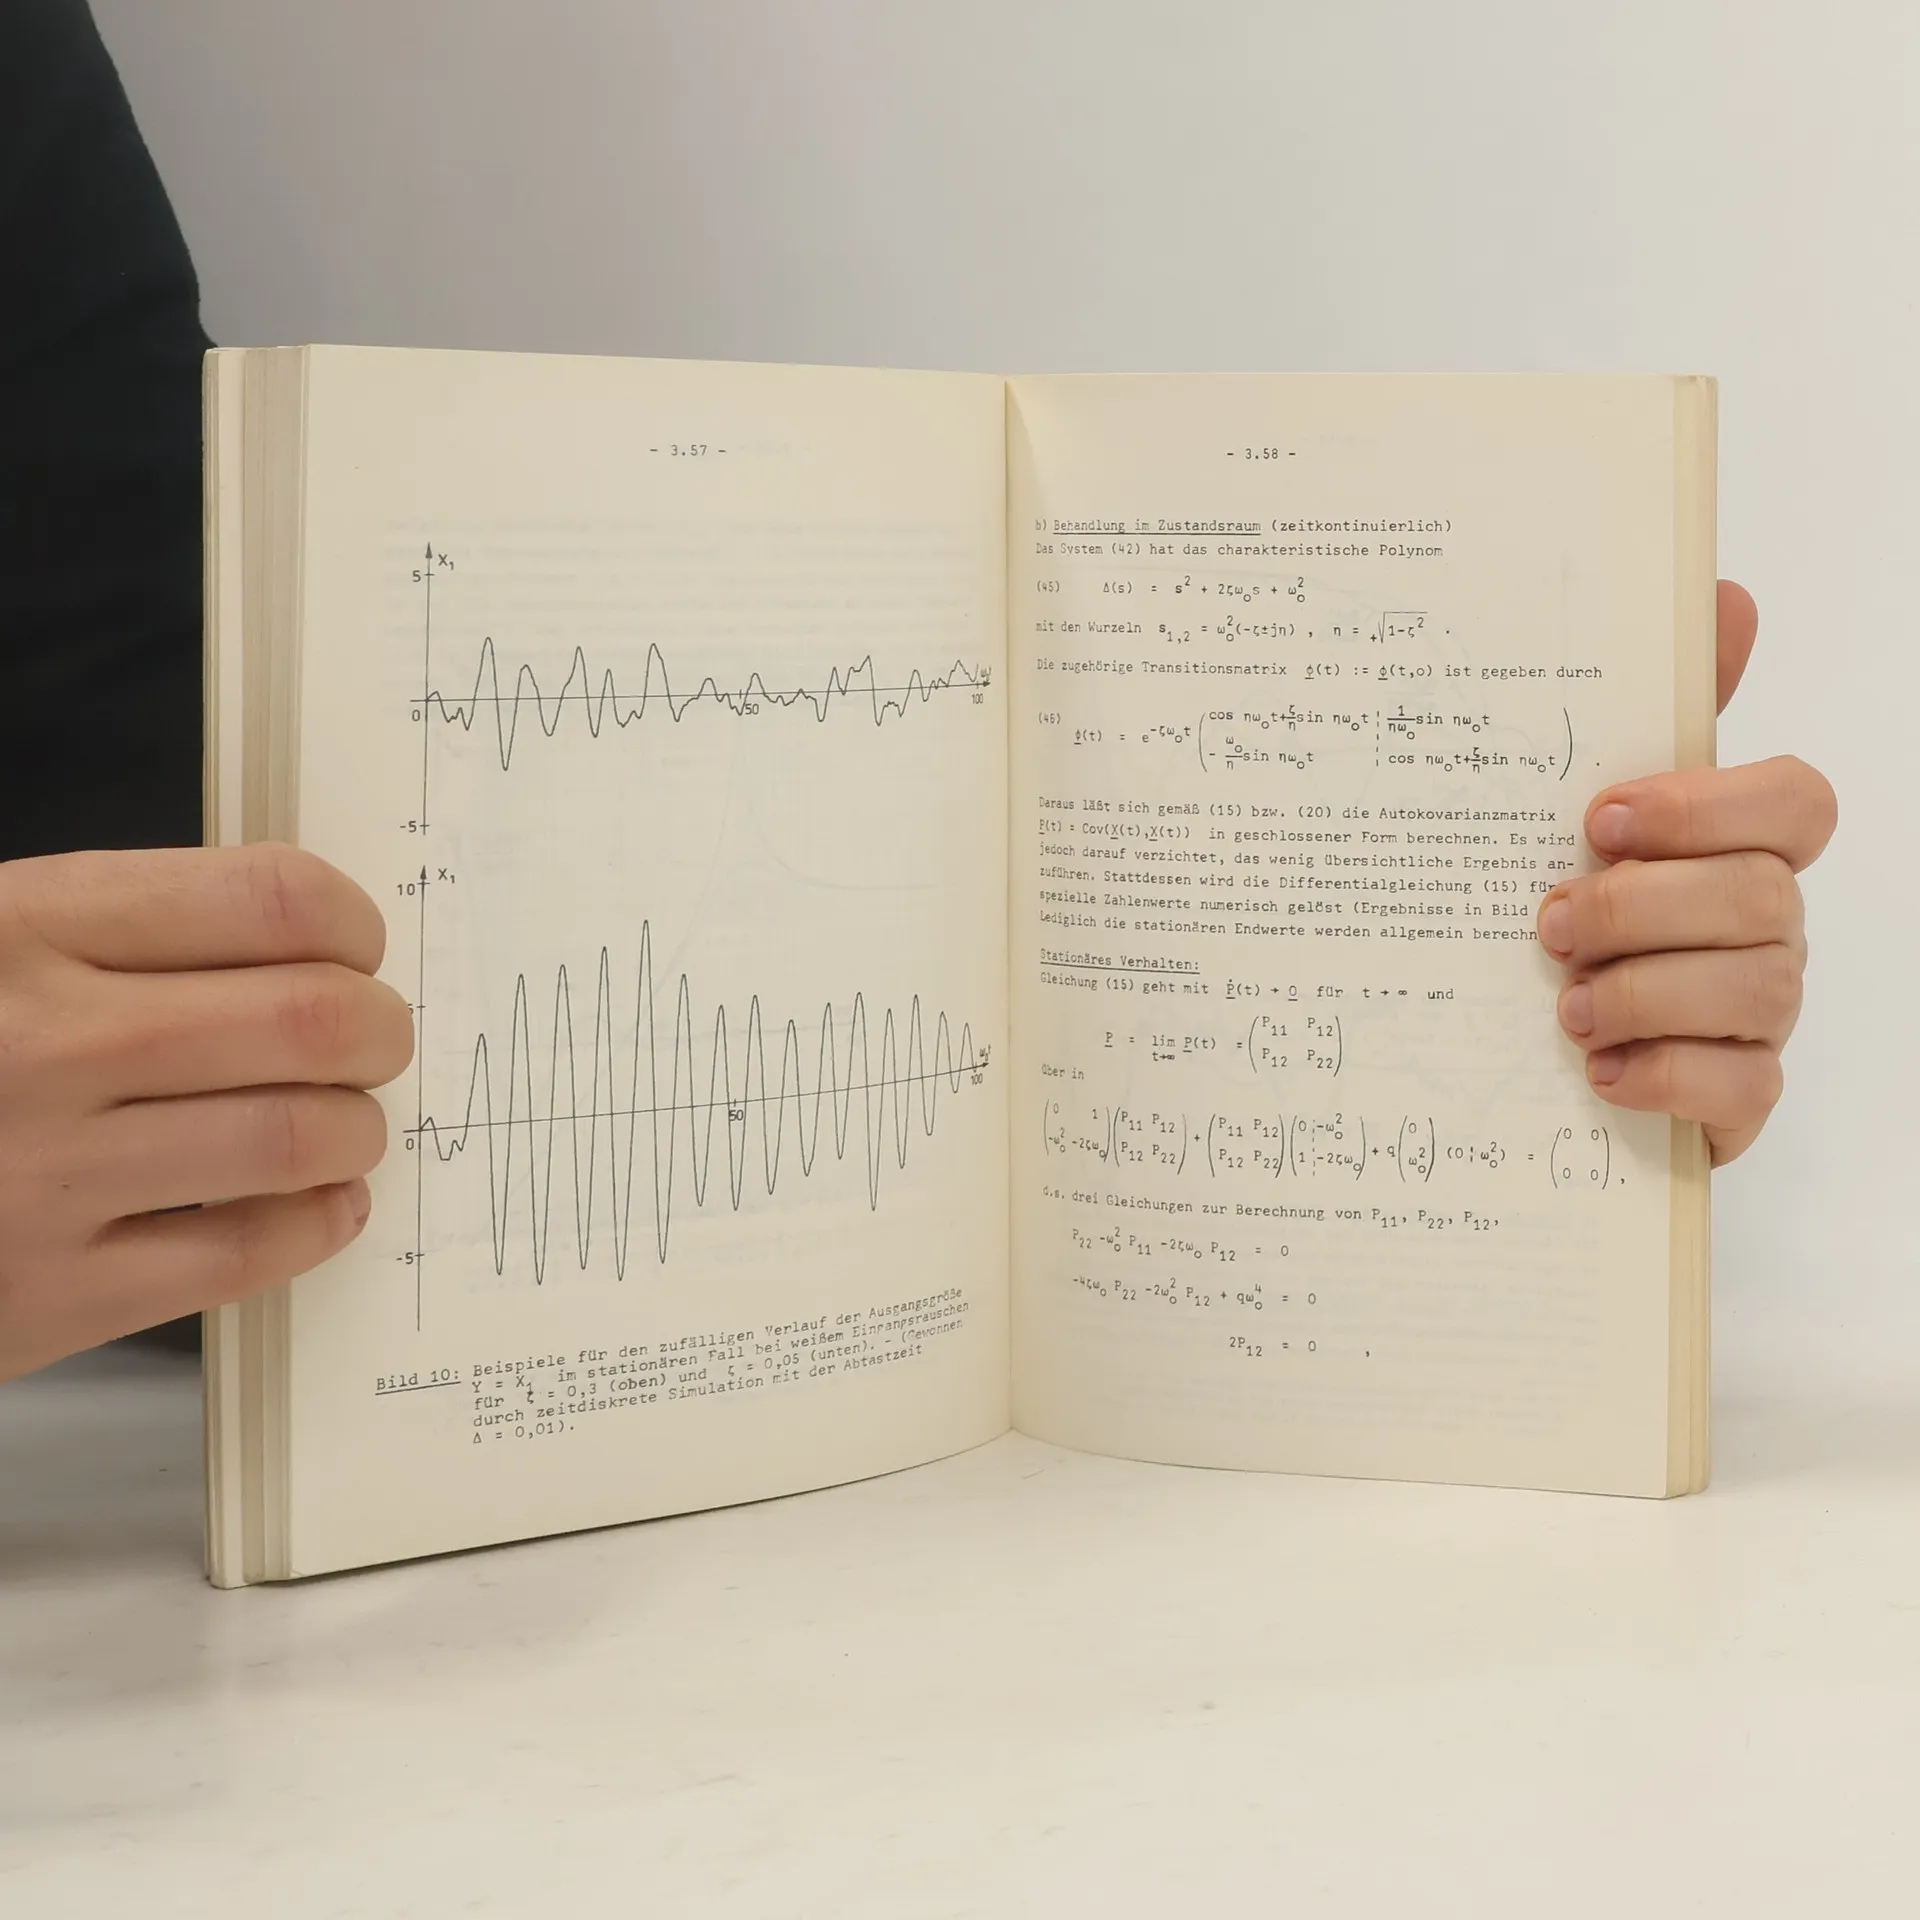 - 3.57 -
X₁
5
0
50
100
-5
X₁
10
0
50
100
-5
Bild 10: Beispiele für den zufälligen Verlauf der Ausgangsgröße
Y = X₁ im stationären Fall bei weißem Eingangsrauschen
für ζ = 0,3 (oben) und ζ = 0,05 (unten). - (Gewonnen
durch zeitdiskrete Simulation mit der Abtastzeit
Δ = 0,01).
- 3.58 -
b) Behandlung im Zustandsraum (zeitkontinuierlich)
Das System (42) hat das charakteristische Polynom
(45) Δ(s) = s² + 2ζω₀s + ω₀²
mit den Wurzeln s₁,₂ = ω₀²(-ζ±jη) , η = +√(1-ζ²) .
Die zugehörige Transitionsmatrix ϕ(t) := ϕ(t,o) ist gegeben durch
(46) ϕ(t) = e^(-ζω₀t) ( cos ηω₀t+ζ/η sin ηω₀t ¦ 1/(ηω₀) sin ηω₀t
- ω₀/η sin ηω₀t ¦ cos ηω₀t+ζ/η sin ηω₀t ) .
Daraus läßt sich gemäß (15) bzw. (20) die Autokovarianzmatrix
P(t) = Cov(X(t),X(t)) in geschlossener Form berechnen. Es wird
jedoch darauf verzichtet, das wenig übersichtliche Ergebnis an-
zuführen. Stattdessen wird die Differentialgleichung (15) für
spezielle Zahlenwerte numerisch gelöst (Ergebnisse in Bild
Lediglich die stationären Endwerte werden allgemein berechn
Stationäres Verhalten:
Gleichung (15) geht mit Ṗ(t) → 0 für t → ∞ und
P = lim P(t) = ( P₁₁ P₁₂
t→∞ P₁₂ P₂₂ )
über in
( 0 1 ) ( P₁₁ P₁₂ ) + ( P₁₁ P₁₂ ) ( 0 ¦ -ω₀² ) + q ( 0 ) (0 ¦ ω₀²) = ( 0 0 )
( -ω₀² -2ζω₀ ) ( P₁₂ P₂₂ ) ( P₁₂ P₂₂ ) ( 1 ¦ -2ζω₀ ) ( ω₀² ) ( 0 0 ) ,
d.s. drei Gleichungen zur Berechnung von P₁₁, P₂₂, P₁₂,
P₂₂ -ω₀² P₁₁ -2ζω₀ P₁₂ = 0
-4ζω₀ P₂₂ -2ω₀² P₁₂ + qω₀⁴ = 0
2P₁₂ = 0 ,